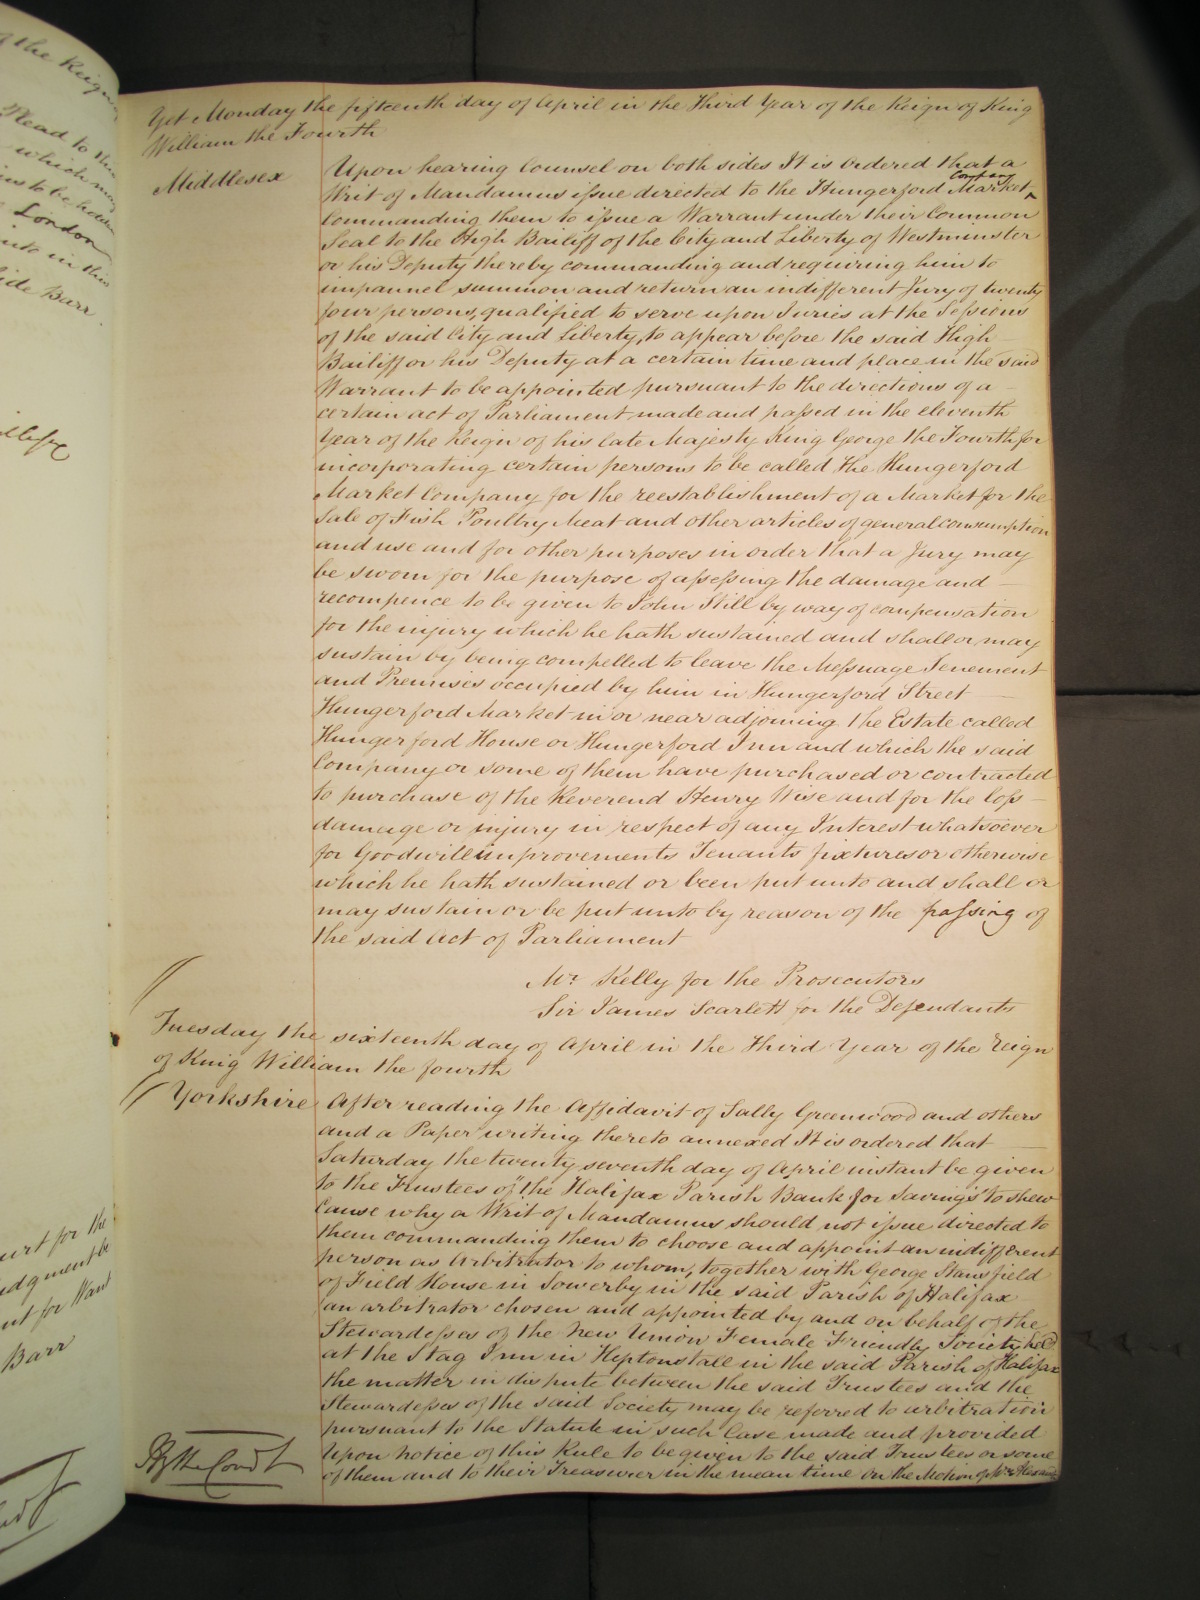 of the Reign
Read to the
which may
London
in this
side Barr.
Court for the
Judgment be
nt for Want
Barr
Yet Monday the fifteenth day of April in the Third Year of the Reign of King
William the Fourth
Middlesex
Upon hearing Counsel on both sides It is ordered that a
Writ of Mandamus issue directed to the Hungerford Market Company
Commanding them to issue a Warrant under their Common
Seal to the High Bailiff of the City and Liberty of Westminster
or his Deputy thereby commanding and requiring him to
impannel summon and return an indifferent Jury of twenty
four persons, qualified to serve upon Juries at the Sessions
of the said City and Liberty, to appear before the said High
Bailiff or his Deputy at a certain time and place in the said
Warrant to be appointed pursuant to the directions of a
certain act of Parliament made and passed in the eleventh
Year of the Reign of his late Majesty King George the Fourth for
incorporating certain persons to be called the Hungerford
Market Company for the reestablishment of a Market for the
Sale of Fish Poultry Meat and other articles of general consumption
and use and for other purposes in order that a Jury may
be sworn for the purpose of assessing the damage and
recompence to be given to John Still by way of compensation
for the injury which he hath sustained and shall or may
sustain by being compelled to leave the Messuage Tenement
and Premises occupied by him in Hungerford Street
Hungerford Market in or near adjoining the Estate called
Hungerford House or Hungerford Inn and which the said
Company or some of them have purchased or contracted
to purchase of the Reverend Henry Wise and for the loss
damage or injury in respect of any Interest whatsoever
for Goodwill improvements Tenants fixtures or otherwise
which he hath sustained or been put unto and shall or
may sustain or be put unto by reason of the passing of
the said Act of Parliament
Mr. Kelly for the Prosecutors
Sir James Scarlett for the Defendants
Tuesday the sixteenth day of April in the Third Year of the Reign
of King William the fourth
Yorkshire
After reading the Affidavit of Sally Greenwood and others
and a Paper writing thereto annexed It is ordered that
Saturday the twenty seventh day of April instant be given
to the Trustees of "the Halifax Parish Bank for Savings" to shew
Cause why a Writ of Mandamus should not issue directed to
them commanding them to choose and appoint an indifferent
person as Arbitrator to whom, together with George Stansfield
of Field House in Sowerby in the said Parish of Halifax
an arbitrator chosen and appointed by and on behalf of the
Stewardesses of the New Union Female Friendly Society held
at the Stag Inn in Heptonstall in the said Parish of Halifax
the matter in dispute between the said Trustees and the
Stewardesses of the said Society may be referred to arbitration
pursuant to the Statute in such Case made and provided
Upon notice of this Rule to be given to the said Trustees or some
of them and to their Treasurer in the mean time On the Motion of Mr.
By the Court